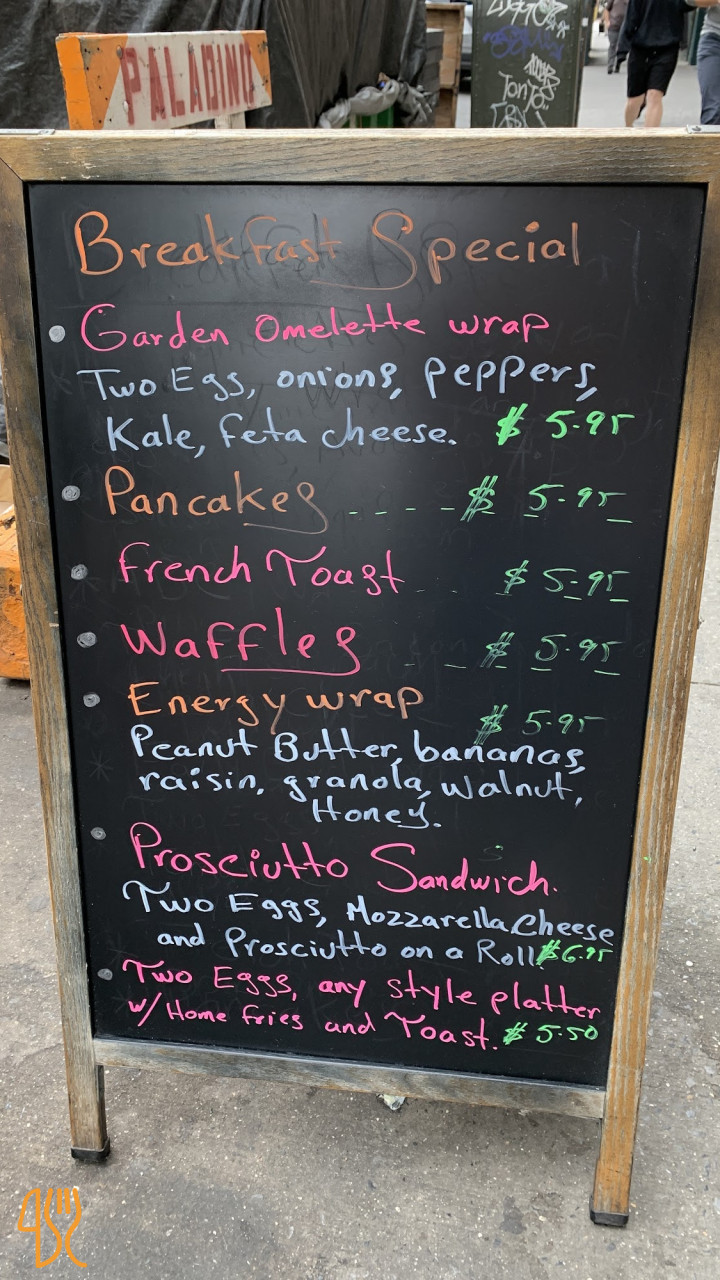 PALADINO
TonJo
Breakfast Special
Garden Omelette wrap
Two Eggs, onions, peppers,
Kale, feta cheese. $ 5.95
Pancakes - - - - $ 5.95
French Toast . . $ 5.95
Waffles - - $ 5.95
Energy wrap $ 5.95
Peanut Butter, bananas,
raisin, granola, walnut,
Honey.
Prosciutto Sandwich.
Two Eggs, Mozzarella Cheese
and Prosciutto on a Roll. $6.95
Two Eggs, any style platter
w/ Home fries and Toast. $ 5.50